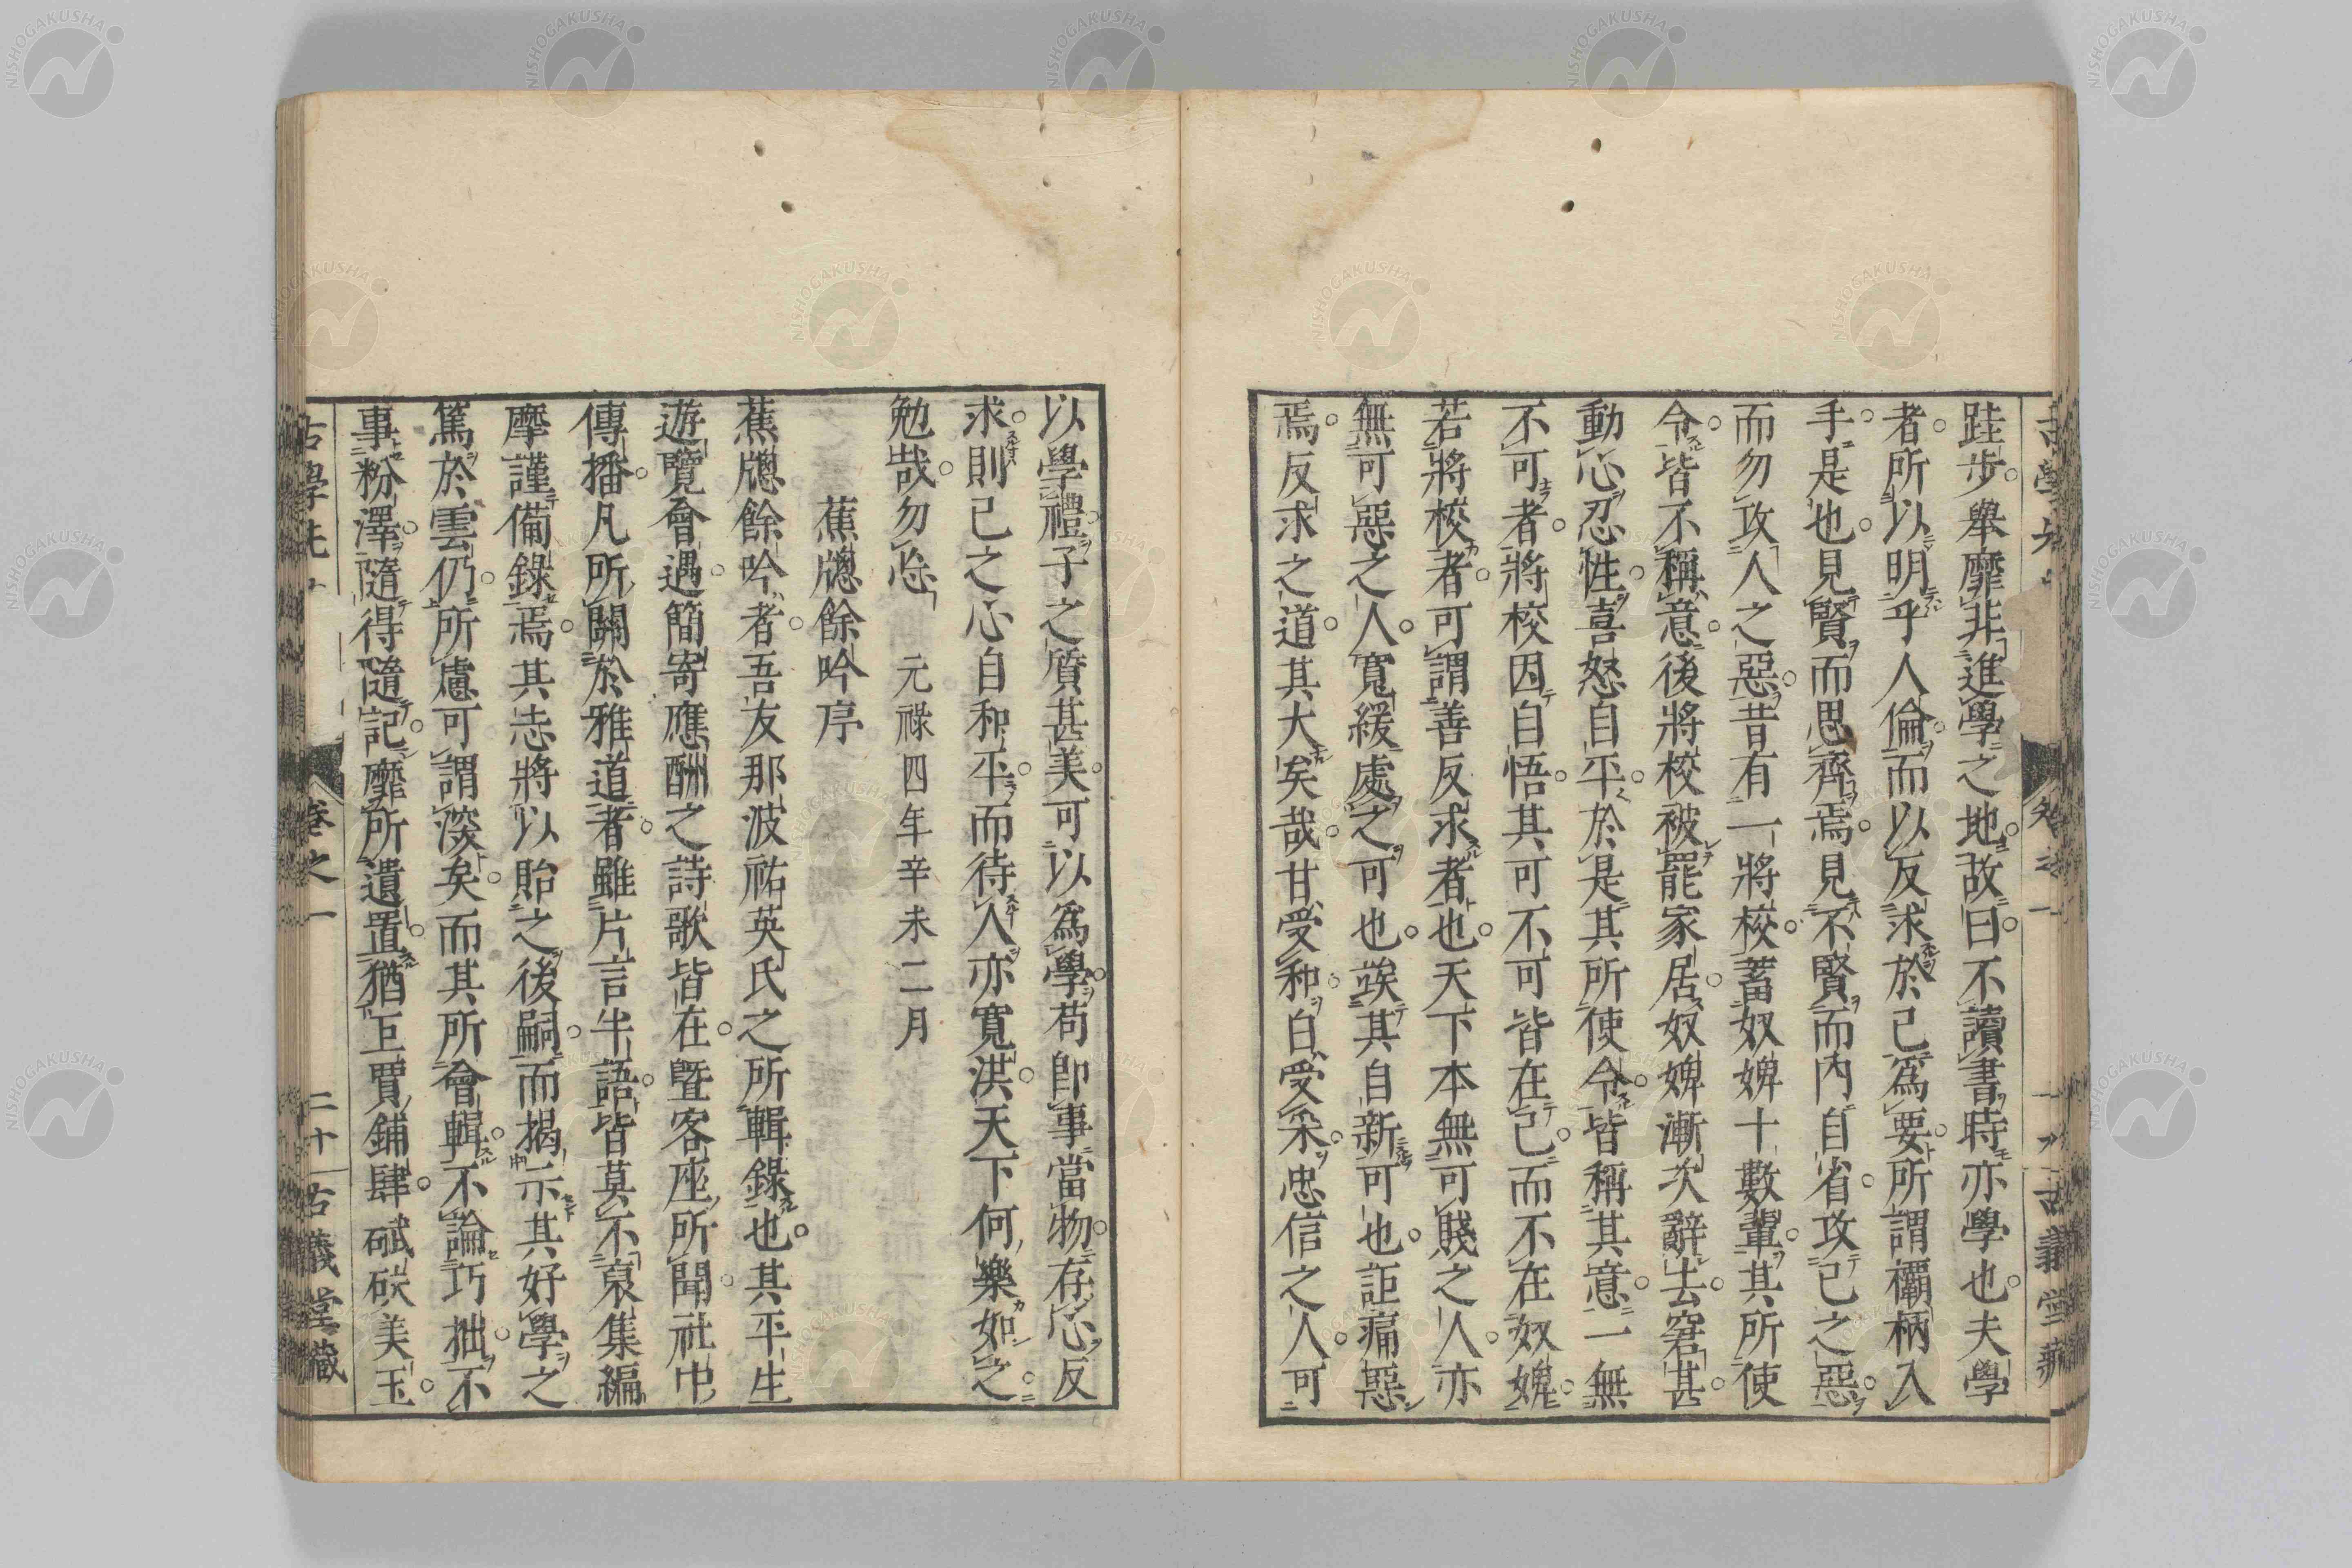 跬步舉靡非進學之地故曰不讀書時亦學也夫學
者所以明乎人倫而以反求於己爲要所謂欛柄入
手是也見賢而思齊焉見不賢而內自省攻己之惡
而勿攻人之惡昔有一將校蓄奴婢十數輩其所使
令皆不稱意後將校被罷家居奴婢漸次辭去窘甚
動心忍性喜怒自平於是其所使令皆稱其意一無
不可者將校因自悟其可不可皆在己而不在奴婢
若將校者可謂善反求者也天下本無可賤之人亦
無可惡之人寬緩處之可也竢其自新可也詎痛惡
焉反求之道其大矣哉甘受和白受采忠信之人可
以學禮子之質甚美可以爲學苟卽事當物存心反
求則己之心自和平而待人亦寬洪天下何樂如之
勉哉勿怠 元祿四年辛未二月
蕉牕餘吟序
蕉牕餘吟者吾友那波祐英氏之所輯錄也其平生
遊覽會遇簡寄應酬之詩歌皆在曁客座所聞社中
傳播凡所關於雅道者雖片言半語皆莫不裒集編
摩謹備錄焉其志將以貽之後嗣而揭示其好學之
篤於雲仍所慮可謂深矣而其所會輯不論巧拙不
事粉澤隨得隨記靡所遺置猶巨賈鋪肆碔砆美玉
古學先 卷之一 二十 古義堂藏